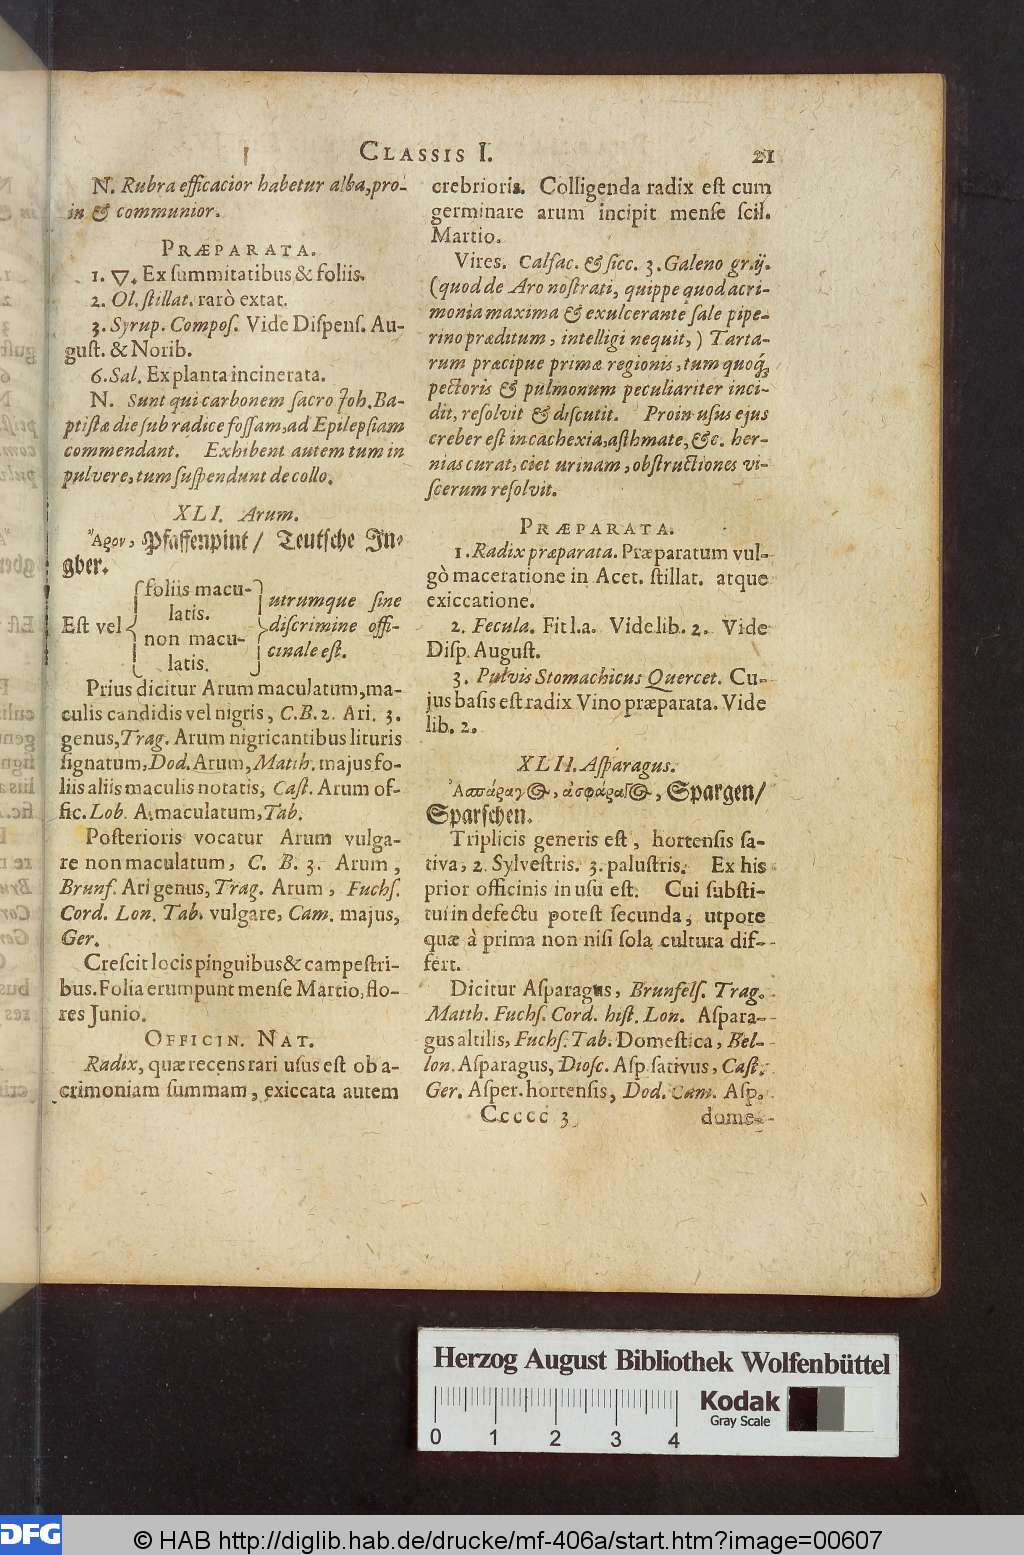 CLASSIS I. 21
N. Rubra efficacior habetur alba, pro-
in & communior.
PRÆPARATA.
1. 🜄. Ex summitatibus & foliis.
2. Ol. stillat. rarò extat.
3. Syrup. Compos. Vide Dispens. Au-
gust. & Norib.
6. Sal. Ex planta incinerata.
N. Sunt qui carbonem sacro Joh. Ba-
ptistæ die sub radice fossam, ad Epilepsiam
commendant. Exhibent autem tum in
pulvere, tum suspendunt de collo.
XLI. Arum.
Ἄρον, Pfaffenpint / Teutsche In-
gber.
Est vel { foliis macu-
latis.
non macu-
latis. } utrumque sine
discrimine offi-
cinale est.
Prius dicitur Arum maculatum, ma-
culis candidis vel nigris, C.B. 2. Ari. 3.
genus, Trag. Arum nigricantibus lituris
signatum, Dod. Arum, Matth. majus fo-
liis aliis maculis notatis, Cast. Arum of-
fic. Lob. A. maculatum, Tab.
Posterioris vocatur Arum vulga-
re non maculatum, C. B. 3. Arum,
Brunf. Ari genus, Trag. Arum, Fuchs.
Cord. Lon. Tab. vulgare, Cam. majus,
Ger.
Crescit locis pinguibus & campestri-
bus. Folia erumpunt mense Martio, flo-
res Junio.
OFFICIN. NAT.
Radix, quæ recens rari usus est ob a-
crimoniam summam, exiccata autem
crebrioris. Colligenda radix est cum
germinare arum incipit mense scil.
Martio.
Vires. Calfac. & sicc. 3. Galeno gr. ij.
(quod de Aro nostrati, quippe quod acri-
monia maxima & exulcerante sale pipe-
rino præditum, intelligi nequit,) Tarta-
rum præcipue primæ regionis, tum quoq́;
pectoris & pulmonum peculiariter inci-
dit, resolvit & discutit. Proin usus ejus
creber est in cachexia, asthmate, &c. her-
nias curat, ciet urinam, obstructiones vi-
scerum resolvit.
PRÆPARATA.
1. Radix præparata. Præparatum vul-
gò maceratione in Acet. stillat. atque
exiccatione.
2. Fecula. Fit l.a. Vide lib. 2. Vide
Disp. August.
3. Pulvis Stomachicus Quercet. Cu-
jus basis est radix Vino præparata. Vide
lib. 2.
XLII. Asparagus.
Ἀσπάραγος, ἀσφάραγος, Spargen /
Sparschen.
Triplicis generis est, hortensis sa-
tiva, 2. Sylvestris. 3. palustris. Ex his
prior officinis in usu est. Cui substi-
tui in defectu potest secunda, utpote
quæ à prima non nisi sola cultura dif-
fert.
Dicitur Asparagus, Brunfels. Trag.
Matth. Fuchs. Cord. hist. Lon. Aspara-
gus altilis, Fuchs. Tab. Domestica, Bel-
lon. Asparagus, Diosc. Asp. sativus, Cast.
Ger. Asper. hortensis, Dod. Cam. Asp.
Ccccc 3 dome-
Herzog August Bibliothek Wolfenbüttel
0 1 2 3 4
Kodak
Gray Scale
DFG
© HAB http://diglib.hab.de/drucke/mf-406a/start.htm?image=00607